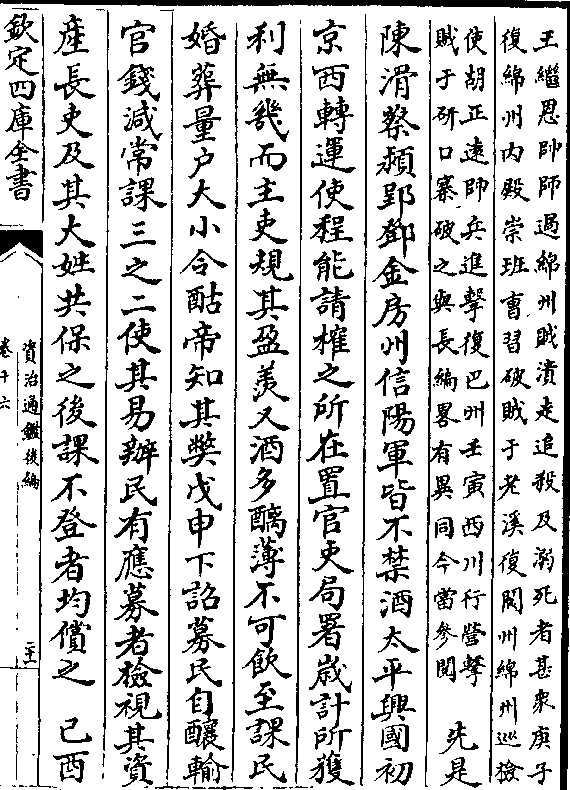 王繼恩帥師過綿州賊潰走追殺及溺死者甚衆庚子
復綿州内殿崇班曹習破賊于老溪復閬州綿州巡檢
使胡正逺帥兵進擊復巴州壬寅西川行營擊
賊于研口寨破之與長編畧有異同今當參閲
先是
陳滑蔡潁郢鄧金房州信陽軍皆不禁酒太平興國初
京西轉運使程能請榷之所在置官吏局署歳計所獲
利無幾而主吏規其盈羨又酒多醨薄不可飲至課民
婚葬量户大小令酤帝知其獘戊申下詔募民自釀輸
官錢減常課三之二使其易辦民有應募者檢視其資
産長吏及其大姓共保之後課不登者均償之 己酉
欽定四庫全書
資治通鑑後編
卷十六